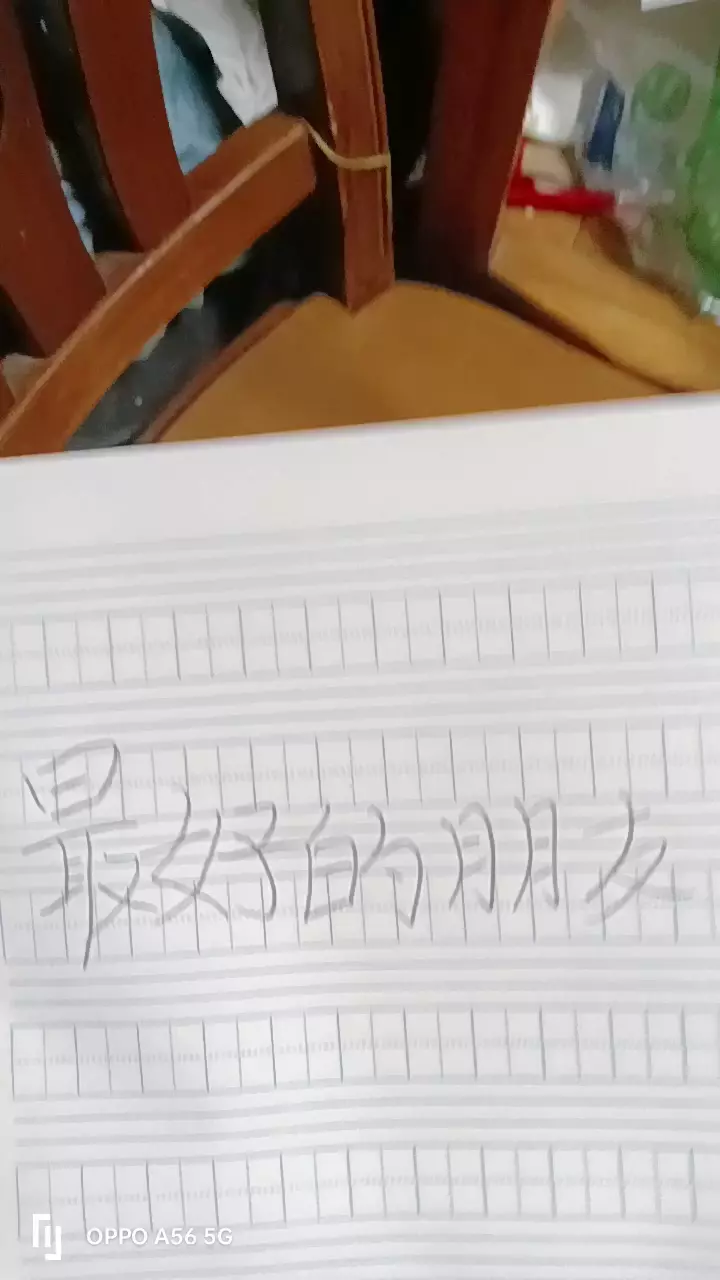 最好的朋友
OPPO A56 5G